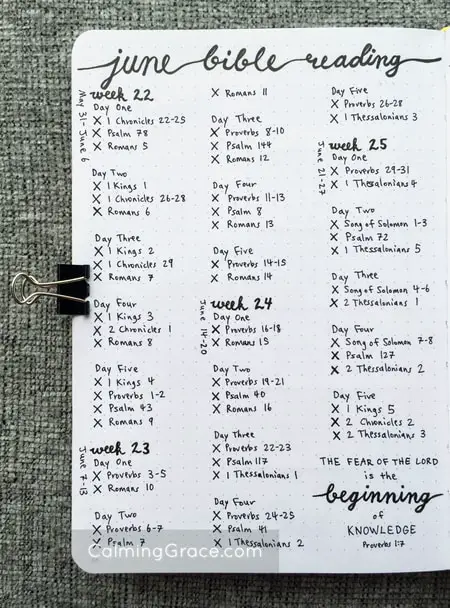 june bible reading
May 31-June 6
week 22
Day One
X 1 Chronicles 22-25
X Psalm 78
X Romans 5
Day Two
X 1 Kings 1
X 1 Chronicles 26-28
X Romans 6
Day Three
X 1 Kings 2
X 1 Chronicles 29
X Romans 7
Day Four
X 1 Kings 3
X 2 Chronicles 1
X Romans 8
Day Five
X 1 Kings 4
X Proverbs 1-2
X Psalm 43
X Romans 9
June 7-13
week 23
Day One
X Proverbs 3-5
X Romans 10
Day Two
X Proverbs 6-7
X Psalm 7
X Romans 11
Day Three
X Proverbs 8-10
X Psalm 144
X Romans 12
Day Four
X Proverbs 11-13
X Psalm 8
X Romans 13
Day Five
X Proverbs 14-15
X Romans 14
June 14-20
week 24
Day One
X Proverbs 16-18
X Romans 15
Day Two
X Proverbs 19-21
X Psalm 40
X Romans 16
Day Three
X Proverbs 22-23
X Psalm 117
X 1 Thessalonians 1
Day Four
X Proverbs 24-25
X Psalm 41
X 1 Thessalonians 2
Day Five
X Proverbs 26-28
X 1 Thessalonians 3
June 21-27
week 25
Day One
X Proverbs 29-31
X 1 Thessalonians 4
Day Two
X Song of Solomon 1-3
X Psalm 72
X 1 Thessalonians 5
Day Three
X Song of Solomon 4-6
X 2 Thessalonians 1
Day Four
X Song of Solomon 7-8
X Psalm 127
X 2 Thessalonians 2
Day Five
X 1 Kings 5
X 2 Chronicles 2
X 2 Thessalonians 3
THE FEAR OF THE LORD
is the
beginning
of
KNOWLEDGE
Proverbs 1:7
CalmingGrace.com